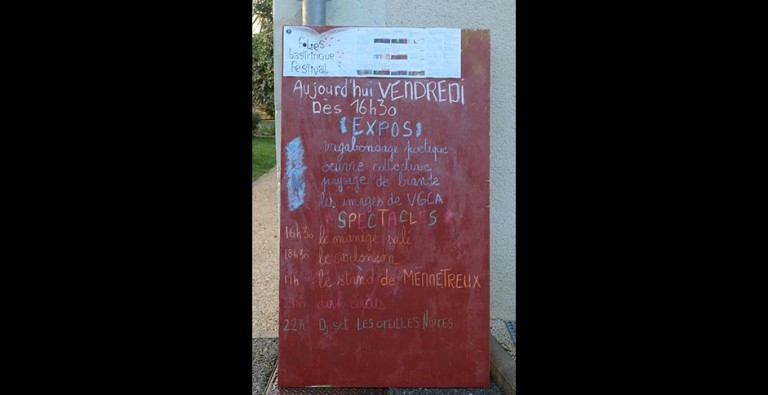 Folies
bastringue
festival
Aujourd'hui VENDREDI
Dès 16h30
EXPOS
vagabondage poétique
oeuvre collective
paysage de brande
les images de VGCA
SPECTACLES
16h30 le manège salé
18h30 le
19h le stand de MENNETREUX
22h Dj set LES OREILLES NOIRES